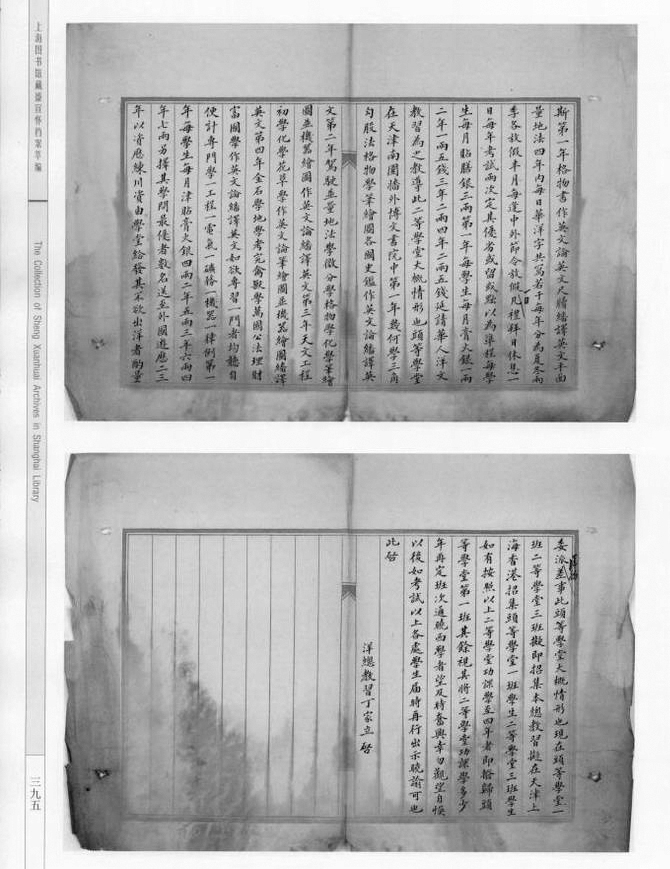 上海图书馆藏盛宣怀档案萃编
The Collection of Sheng Xuanhuai Archives in Shanghai Library
三九五
斯第一年格物書作英文論英文尺牘繙譯英文平面
量地法四年內每日華洋字共寫若干每年分為夏冬兩
季各放假半月每逢中外節令放假凡禮拜日休息一
日每年考試兩次定其優劣或留或黜以為準程每學
生每月貼膳銀三兩第一年每學生每月膏火銀一兩
二年一兩五錢三年二兩四年二兩五錢延請華人洋文
教習為之教導此二等學堂大概情形也頭等學堂
在天津南圍牆外博文書院中第一年幾何學三角
勾股法格物學筆繪圖各國史鑑作英文論繙譯英
文第二年駕駛並量地法學微分學格物學化學筆繪
圖並機器繪圖作英文論繙譯英文第三年天文工程
初學化學花草學作英文論筆繪圖並機器繪圖繙譯
英文第四年金石學地學考究禽獸學萬國公法理財
富國學作英文論繙譯英文如欲專習一門者均聽自
便計專門學一工程一電氣一礦務一機器一律例第一
年每學生每月津貼膏火銀四兩二年五兩三年六兩四
年七兩另擇其學問最優者數名送至外國遊歷二三
年以資歷練川資由學堂給發其不欲出洋者酌量
委派差事此頭等學堂大概情形也現在頭等學堂一
班二等學堂三班擬即招集本總教習擬在天津上
海香港招集頭等學堂一班學生二等學堂三班學生
如有按照以上二等學堂功課學至四年者即撥歸頭
等學堂第一班其餘視其將二等學堂功課學多少
年再定班次通曉西學者望及時奮興幸勿觀望自悞
以後如考試以上各處學生屆時再行出示曉諭可也
此啓
洋總教習丁家立啓